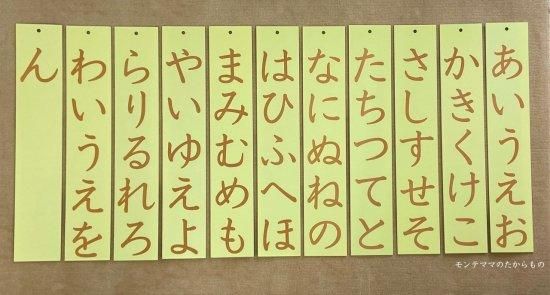 あいうえお
かきくけこ
さしすせそ
たちつてと
なにぬねの
はひふへほ
まみむめも
やいゆえよ
らりるれろ
わいうえを
ん
モンテママのたからもの